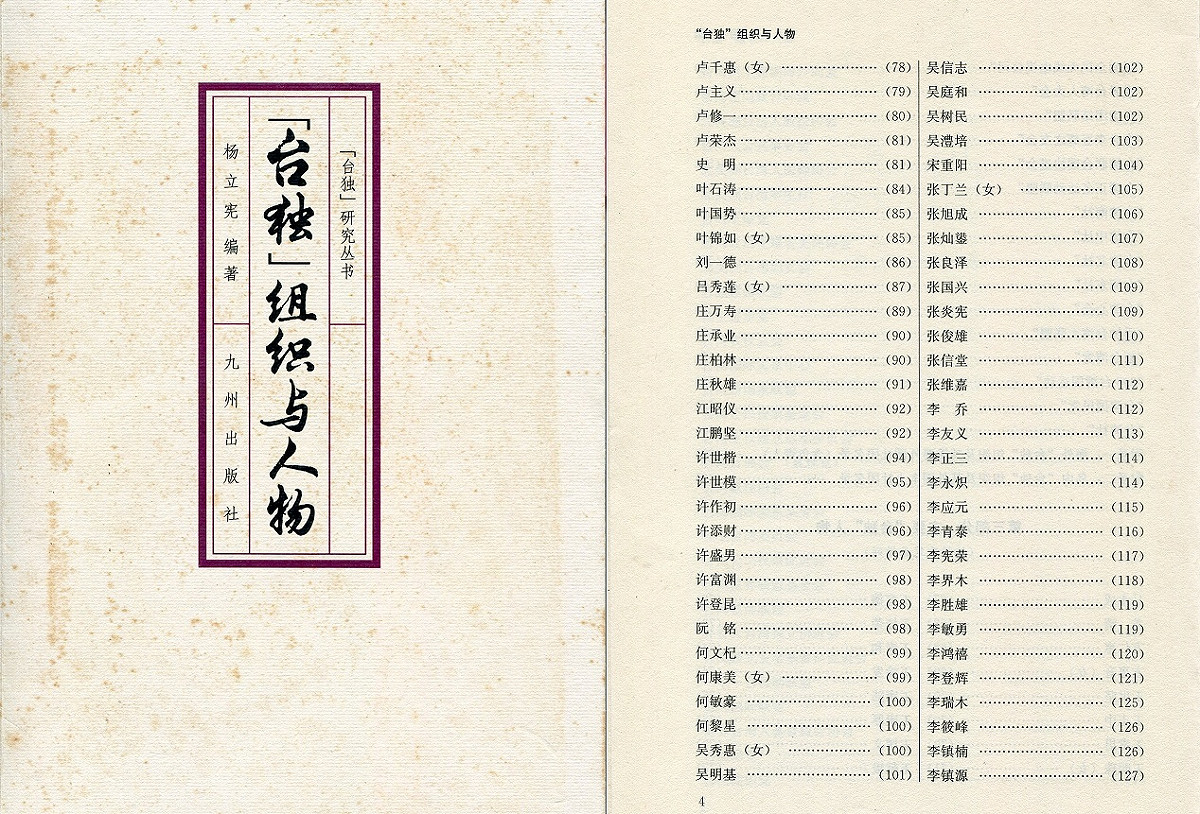 「台独」研究丛书
「台独」组织与人物
杨立宪 编著
九州出版社
“台独”组织与人物
卢千惠（女）…………………（78）
卢主义…………………………（79）
卢修一…………………………（80）
卢荣杰…………………………（81）
史　明…………………………（81）
叶石涛…………………………（84）
叶国势…………………………（85）
叶锦如（女）…………………（85）
刘一德…………………………（86）
吕秀莲（女）…………………（87）
庄万寿…………………………（89）
庄承业…………………………（90）
庄柏林…………………………（90）
庄秋雄…………………………（91）
江昭仪…………………………（92）
江鹏坚…………………………（92）
许世楷…………………………（94）
许世模…………………………（95）
许作初…………………………（96）
许添财…………………………（96）
许盛男…………………………（97）
许富渊…………………………（98）
许登昆…………………………（98）
阮　铭…………………………（98）
何文杞…………………………（99）
何康美（女）…………………（99）
何敏豪 ………………………（100）
何黎星 ………………………（100）
吴秀惠（女） ………………（100）
吴明基 ………………………（101）
吴信志 ………………………（102）
吴庭和 ………………………（102）
吴树民 ………………………（102）
吴澧培 ………………………（103）
宋重阳 ………………………（104）
张丁兰（女） ………………（105）
张旭成 ………………………（106）
张灿鍙 ………………………（107）
张良泽 ………………………（108）
张国兴 ………………………（109）
张炎宪 ………………………（109）
张俊雄 ………………………（110）
张信堂 ………………………（111）
张维嘉 ………………………（112）
李　乔 ………………………（112）
李友义 ………………………（113）
李正三 ………………………（114）
李永炽 ………………………（114）
李应元 ………………………（115）
李青泰 ………………………（116）
李宪荣 ………………………（117）
李界木 ………………………（118）
李胜雄 ………………………（119）
李敏勇 ………………………（119）
李鸿禧 ………………………（120）
李登辉 ………………………（121）
李瑞木 ………………………（125）
李筱峰 ………………………（126）
李镇楠 ………………………（126）
李镇源 ………………………（127）
4